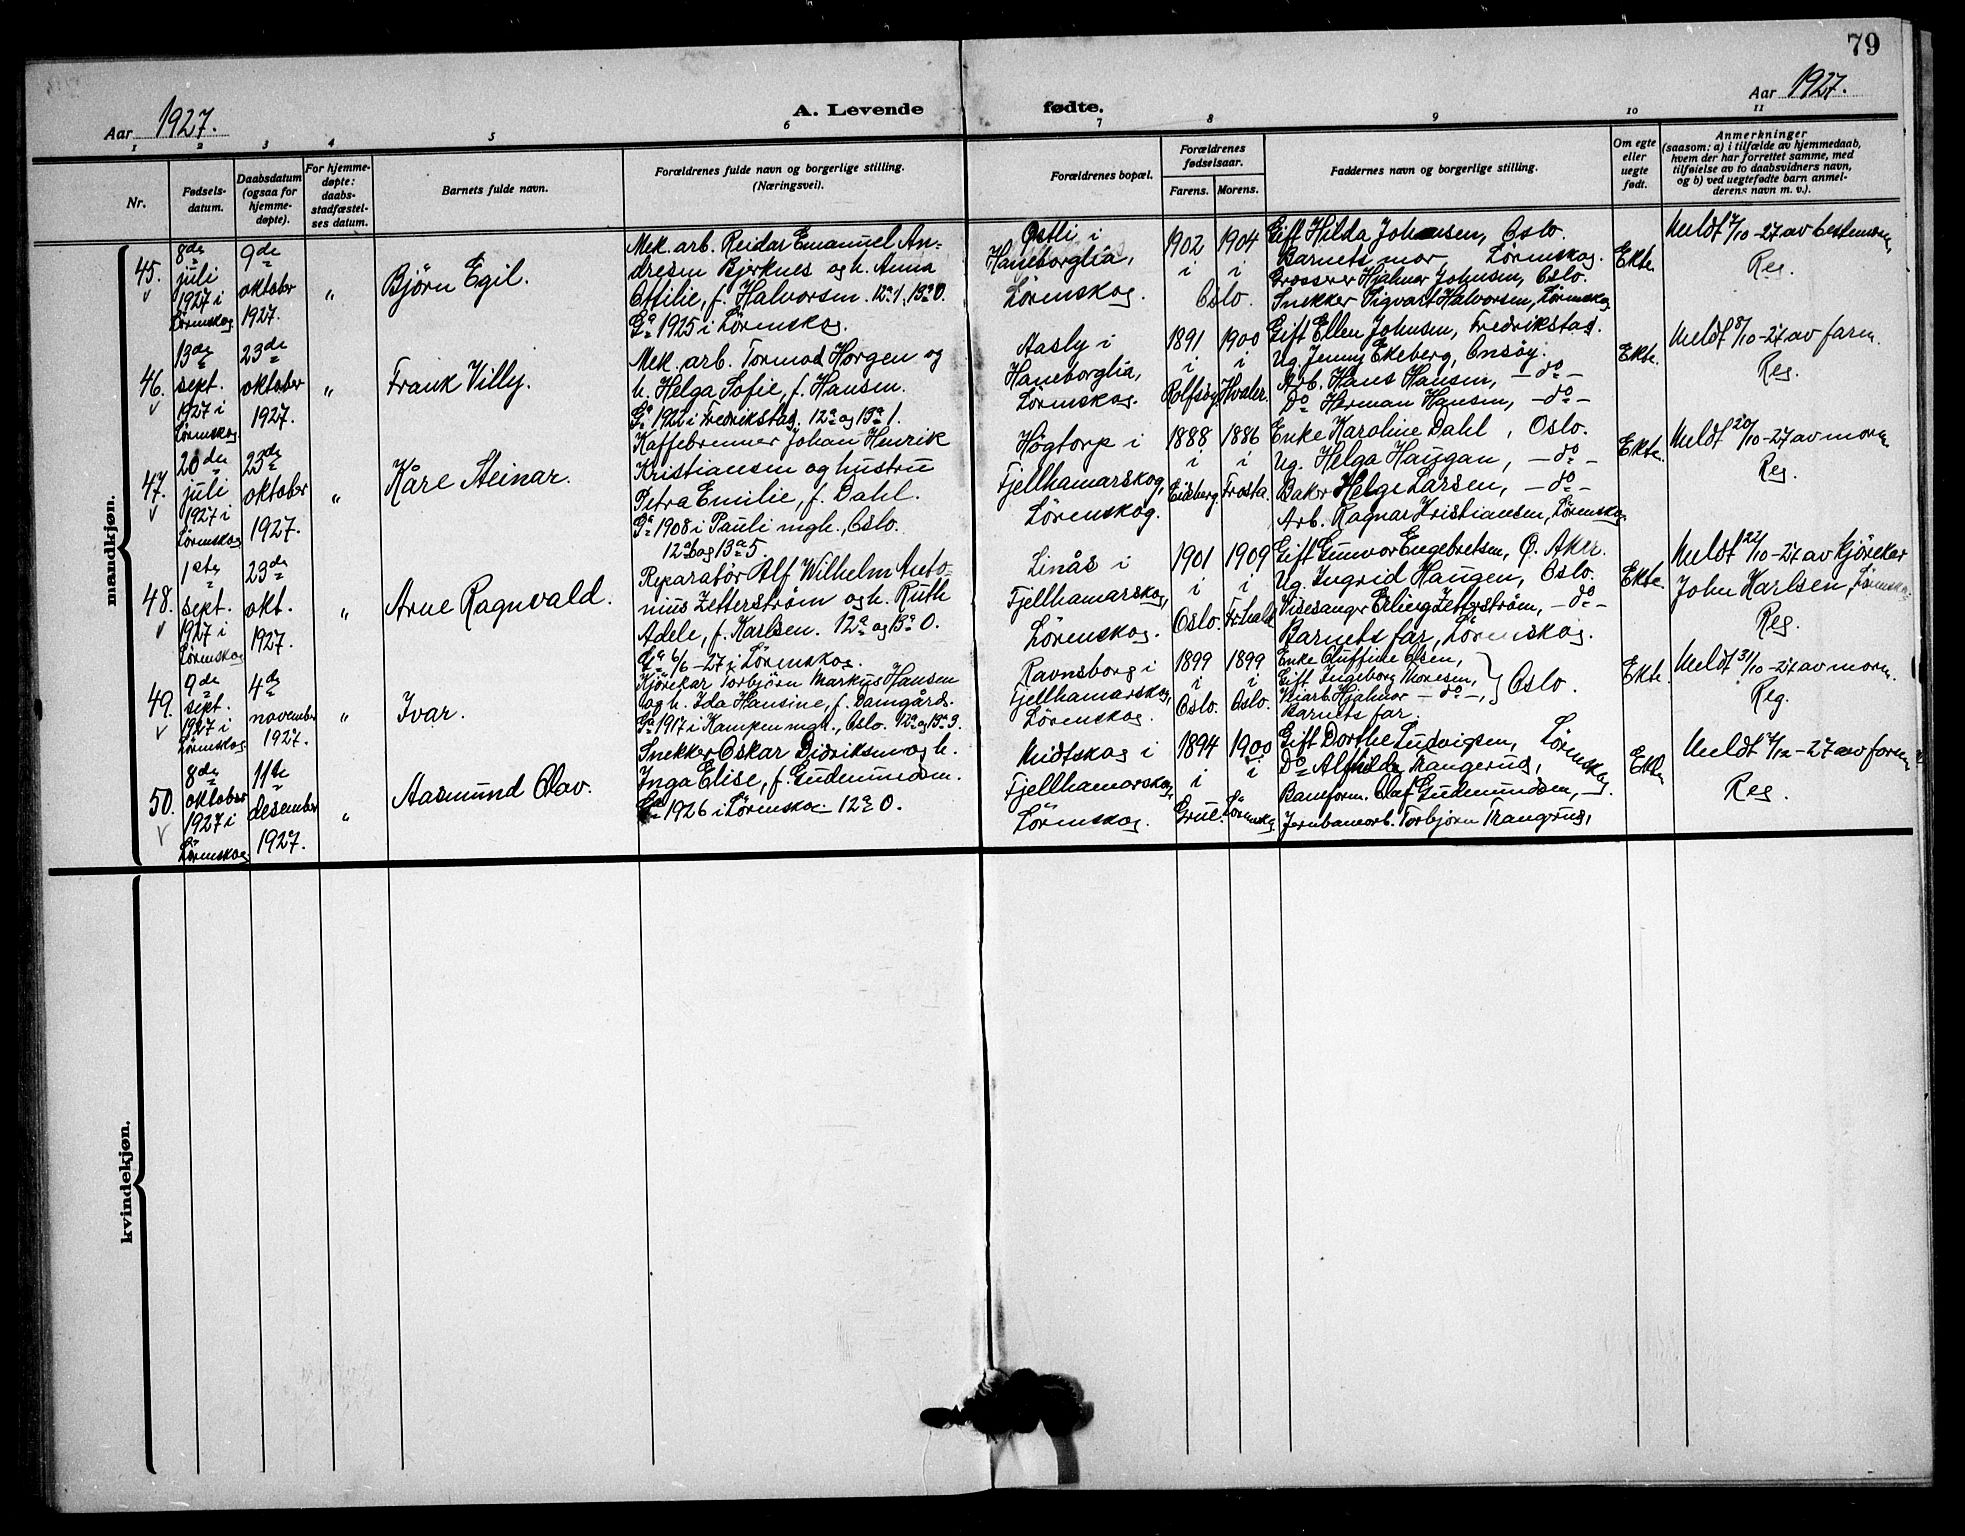 79
Aar 1927.
A. Levende fødte.
Aar 1927.
1 2 3 4 5 6 7 8 9 10 11
Nr.
Fødsels-
datum.
Daabsdatum
(ogsaa for
hjemme-
døpte).
For hjemme-
døpte:
daabs-
stadfæstel-
ses datum.
Barnets fulde navn.
Forældrenes fulde navn og borgerlige stilling.
(Næringsvei).
Forældrenes bopæl.
Forældrenes
fødselsaar.
Farens. Morens.
Faddernes navn og borgerlige stilling.
Om egte
eller
uegte
født.
Anmerkninger
(saasom: a) i tilfælde av hjemmedaab,
hvem der har forrettet samme, med
tilføielse av to daabsvidners navn,
og b) ved uegtefødte barn anmel-
derens navn m. v.).
mandkjøn.
45.
8de
juli
1927 i
Lörenskog
9de
oktober
1927.
"
Björn Egil.
Mek. arb. Reidar Emanuel An-
dresen Bjerknes og h. Anna
Otilie, f. Halvorsen. 12a 1, 13a 0.
Ga 1925 i Lörenskog.
Östli i
Haneborglia,
Lörenskog.
1902 1904
i i
Oslo.
Gift Hilda Johnsen, Oslo.
Barnets mor, Lörenskog.
Grosserer Hjalmar Johnsen, Oslo.
Snekker Sigvart Halvorsen, Lörenskog
Ekte.
Meldt 7/10-27 av bestemoren
Reg.
46.
13de
sept.
1927 i
Lörenskog
23de
oktober
1927.
"
Frank Villy.
Mek. arb. Tormod Horgen og
h. Helga Sofie, f. Hansen.
Ga 1921 i Fredrikstad. 12a og 13a 1.
Aasly i
Haneborglia,
Lörenskog.
1891 1900
i i
Rolfsöy. Hvaler.
Gift Ellen Johnsen, Fredrikstad.
Ug. Jenny Ekeberg, Onsöy.
Arb. Hans Hansen, - do -
Do Herman Hansen, - do -
Ekte.
Meldt 8/10-27 av faren.
Reg.
47.
20de
juli
1927 i
Lörenskog
23de
oktober
1927.
"
Kåre Steinar.
Kaffebrenner Johan Henrik
Kristiansen og hustru
Petra Emilie, f. Dahl.
Ga 1908 i Pauli mgh., Oslo.
12a 6 og 13a 5.
Högtorp i
Fjellhamarskog,
Lörenskog.
1888 1886
i i
Eidsberg. Frosta.
Enke Karoline Dahl, Oslo.
Ug. Helga Haugan, - do -
Baker Helge Larsen, - do -
Arb. Ragnar Kristiansen, Lörenskog
Ekte.
Meldt 20/10-27 av moren
Reg.
48.
1ste
sept.
1927 i
Lörenskog
23de
okt.
1927.
"
Arne Ragnvald.
Reparatör Alf Wilhelm Anto-
nius Zetterström og h. Ruth
Adele, f. Karlsen. 12a og 13a 0.
Ga 6/6-27 i Lörenskog.
Linås i
Fjellhamarskog,
Lörenskog.
1901 1909
i i
Oslo. Fr.hald
Gift Gunvor Engebretsen, Ö. Aker.
Ug. Ingrid Haugen, Oslo.
Visesanger Erling Zetterström, - do -
Barnets far, Lörenskog.
Ekte.
Meldt 22/10-27 av kjörekar
John Karlsen, Lörenskog.
Reg.
49.
9de
sept.
1927 i
Lörenskog
4de
november
1927.
"
Ivar.
Kjörekar Torbjörn Markus Hansen
og h. Ida Hansine, f. Damgård.
Ga 1917 i Kampen mgh., Oslo. 12a og 13a 3.
Ravnsborg i
Fjellhamarskog,
Lörenskog.
1899 1899
i i
Oslo. Oslo.
Enke Olufine Olsen,
Gift Ingeborg Monsen,
Veiarb. Hjalmar - do -,
Barnets far.
Oslo.
Ekte.
Meldt 31/10-27 av moren.
Reg.
50.
8de
oktober
1927 i
Lörenskog
11te
desember
1927.
"
Aasmund Olav.
Snekker Oskar Didriksen og h.
Inga Elise, f. Gudmundsen.
Ga 1926 i Lörenskog. 12a 0.
Midtskog i
Fjellhamarskog,
Lörenskog.
1894 1900
i i
Grue. Lörenskog
Gift Dorthe Ludvigsen,
Do Alfhilda Trangerud,
Baneform. Olaf Gudmundsen,
Jernbanearb. Torbjörn Trangrud,
Lörenskog.
Ekte
Meldt /12-27 av faren
Reg.
kvindekjøn.